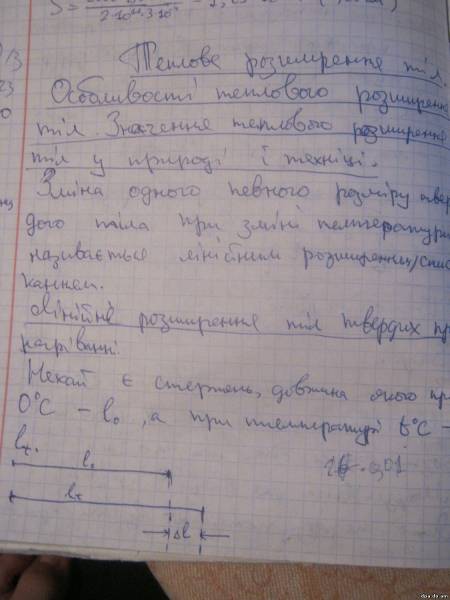 S = 2·10¹¹·3·10⁵
Теплове розширення тіл.
Особливості теплового розширення
тіл. Значення теплового розширення
тіл у природі і техніці.
Зміна одного певного розміру твер
дого тіла при зміні температури
називається лінійним розширенням/стис
канням.
Лінійне розширення тіл твердих пр
нагріванні.
Нехай є стержень, довжина якого пр
0°C – l₀, а при температурі t°C –
lₜ.
l₀
lₜ
Δl
dpa.do.am